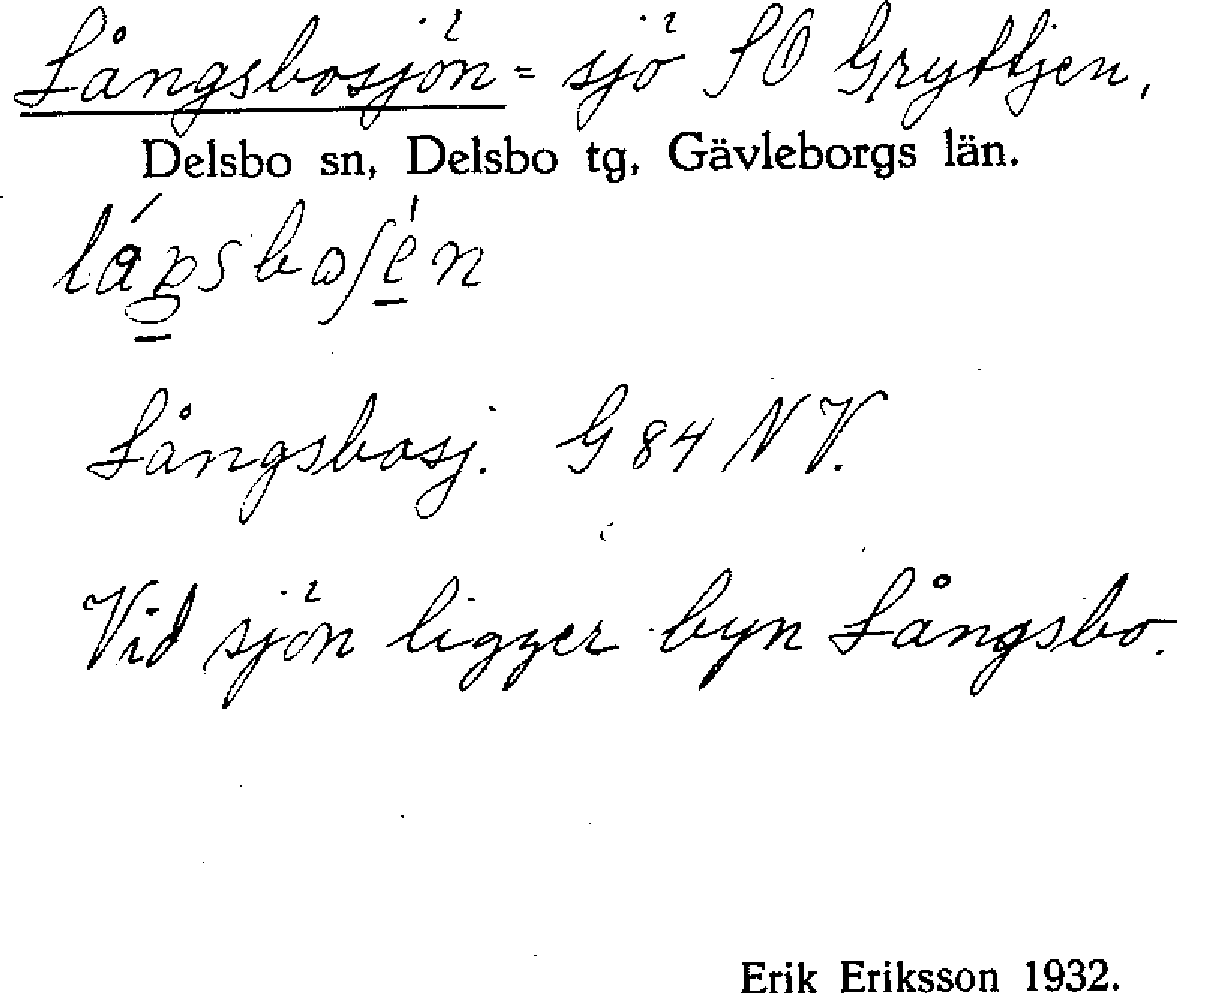 Långsbosjön = sjö SÖ Gryttjen,
Delsbo sn, Delsbo tg, Gävleborgs län.
Långsbosj. G 84 NV.
Vid sjön ligger byn Långsbo.
Erik Eriksson 1932.